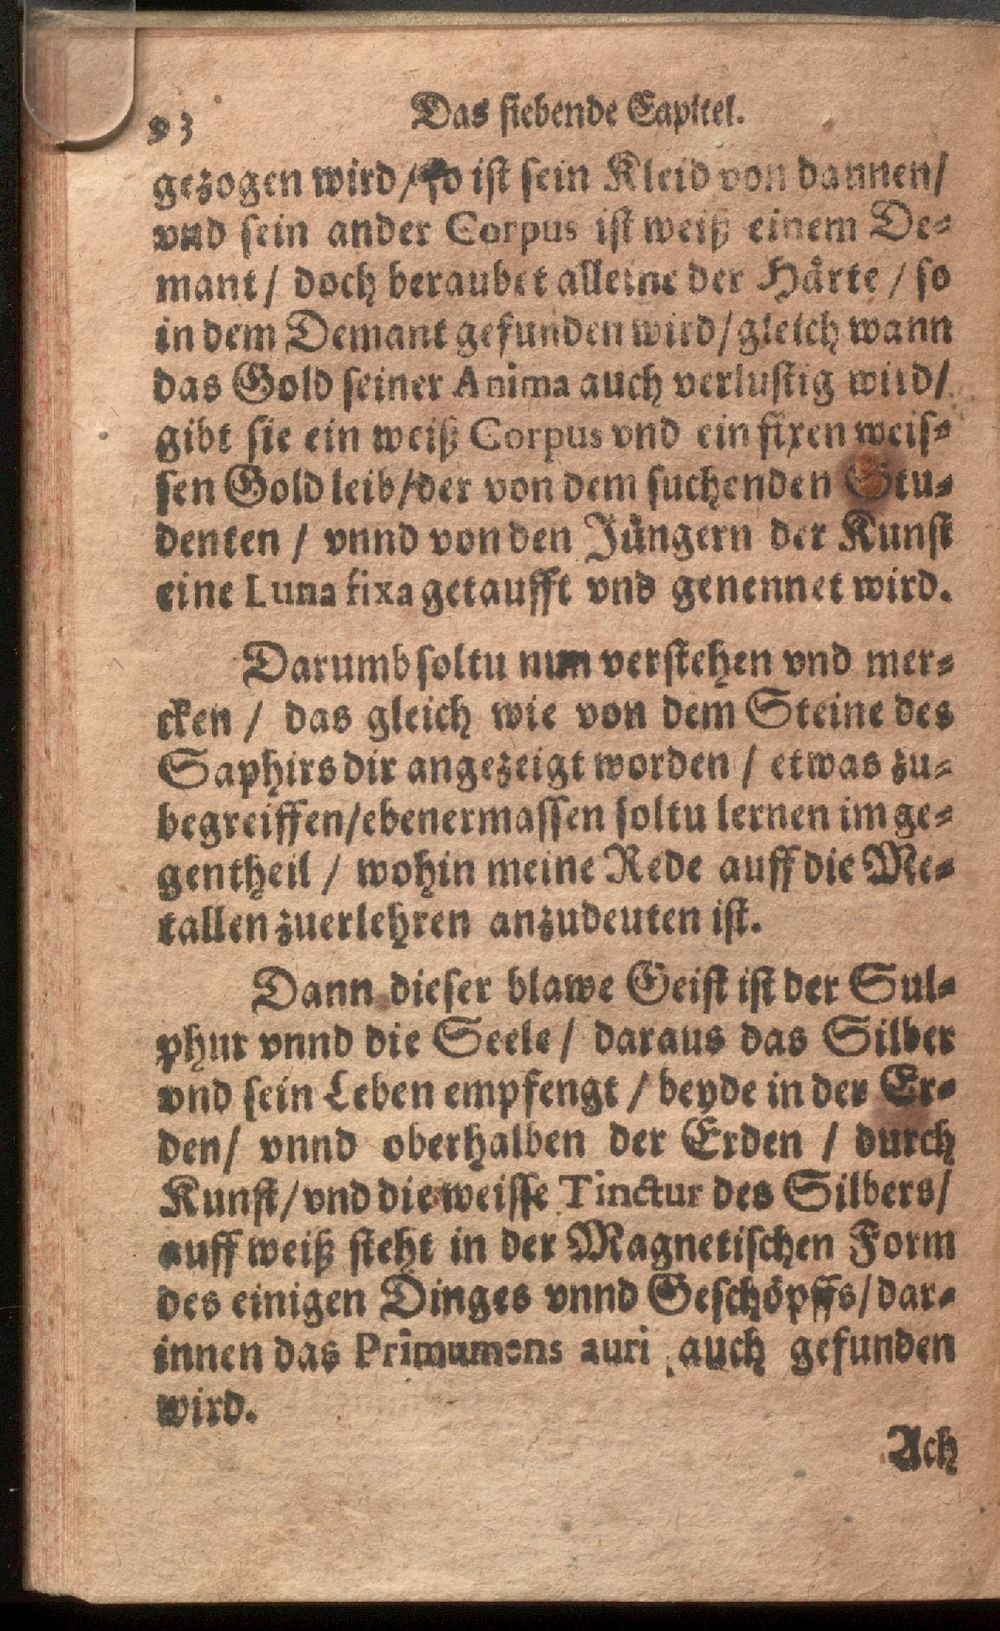 93 Das siebende Capitel.
gezogen wird/ so ist sein Kleid von dannen/
vnd sein ander Corpus ist weiß einem De-
mant/ doch beraubet alleine der Härte / so
in dem Demant gefunden wird/ gleich wann
das Gold seiner Anima auch verlustig wird/
gibt sie ein weiß Corpus vnd ein fixen weis-
sen Gold leib/ der von dem suchenden Stu-
denten / vnnd von den Jüngern der Kunst
eine Luna fixa getaufft vnd genennet wird.
Darumb soltu nun verstehen vnd mer-
cken / das gleich wie von dem Steine des
Saphirs dir angezeigt worden / etwas zu-
begreiffen/ ebenermassen soltu lernen im ge-
gentheil / wohin meine Rede auff die Me-
tallen zuerlehren anzudeuten ist.
Dann dieser blawe Geist ist der Sul-
phur vnnd die Seele / daraus das Silber
vnd sein Leben empfengt / beyde in der Er-
den/ vnnd oberhalben der Erden / durch
Kunst/ vnd die weisse Tinctur des Silbers/
auff weiß steht in der Magnetischen Form
des einigen Dinges vnnd Geschöpffs/ dar-
innen das Primumens auri auch gefunden
wird.
Ach